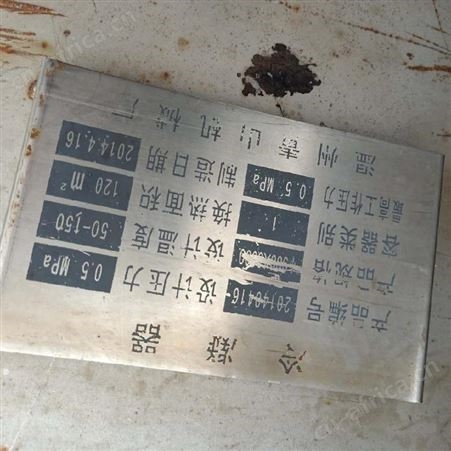 冷 凝 器
产品编号 20140416 设计压力 0.5 MPa
产品规格 设计温度 50-150
容器类别 1 换热面积 120 m²
最高工作压力 0.5 MPa 制造日期 2014.4.16
温 州 山 机 械 厂